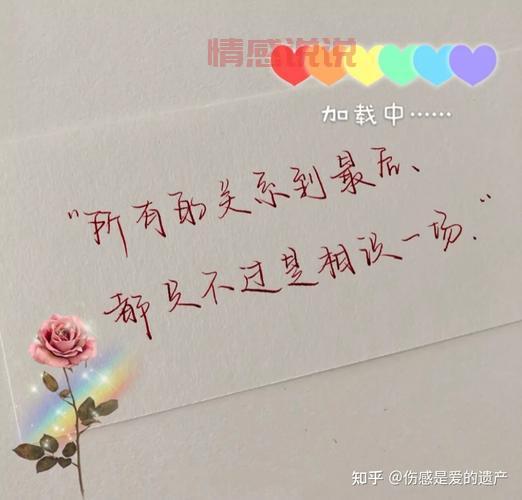 情感说说
加载中……
“所有的关系到最后、
都只不过是相识一场.”
知乎 @伤感是爱的遗产